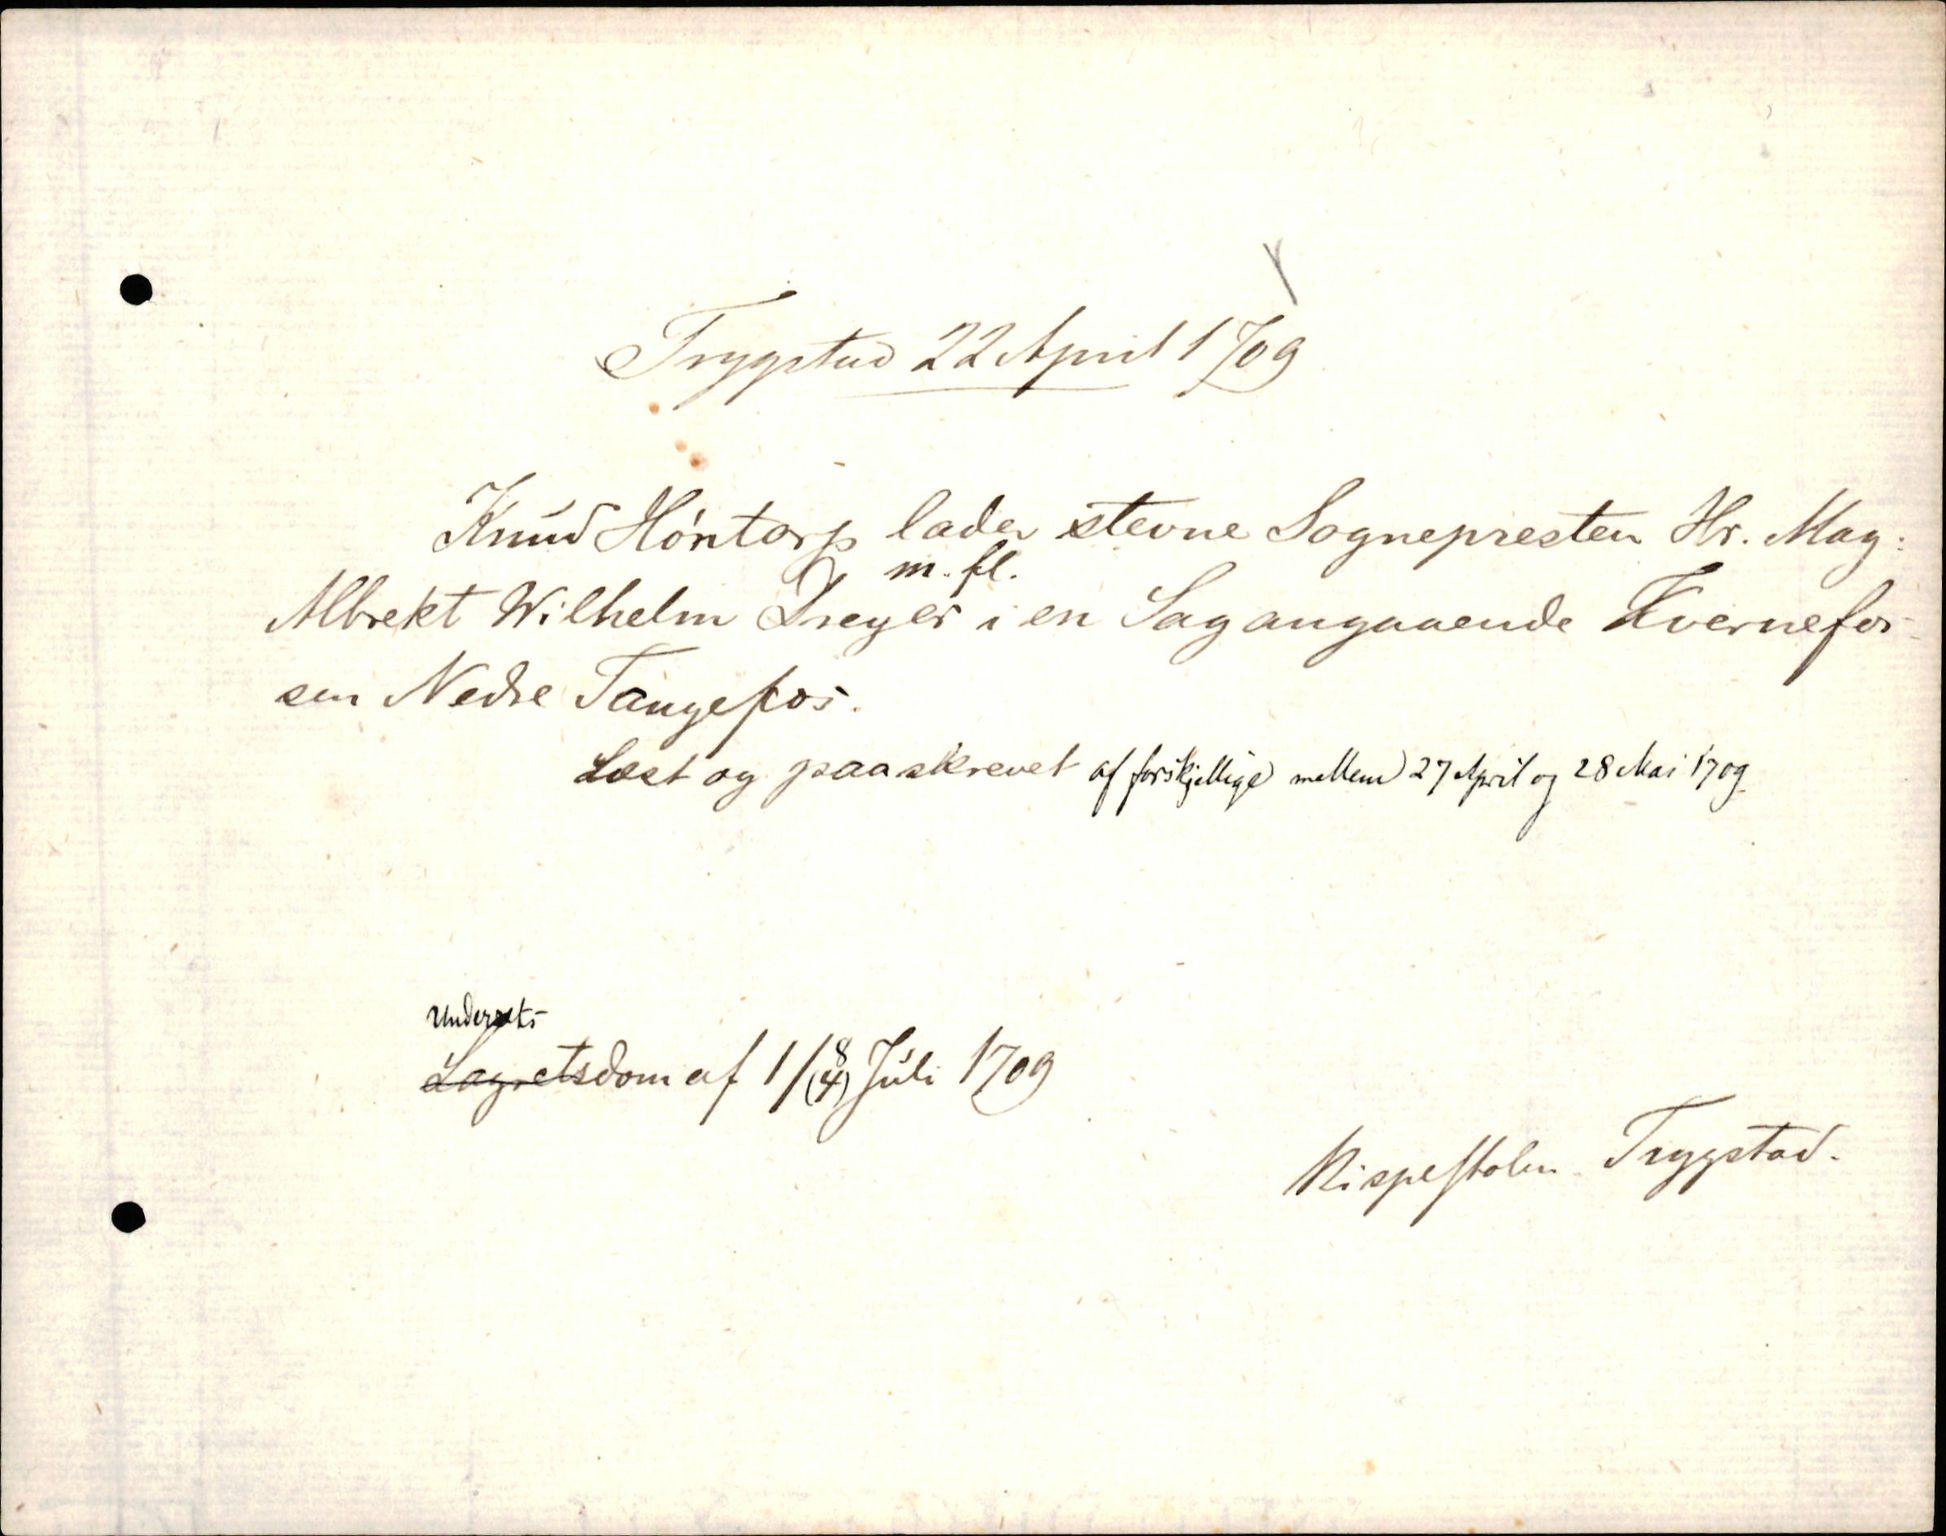 Trygstad 22 April 1709
Knud Höntorp lader stevne Sognepresten Hr. Mag:
m. fl.
Albrekt Wilhelm Dreyer i en Sag angaaende Kvernefos-
sen Nedre Tangefos.
Læst og paaskrevet af forskjellige mellem 27 April og 28 Mai 1709.
Underrets-
Lagretsdom af 1/(8/4) Juli 1709
Rispeholen. Trygstad.